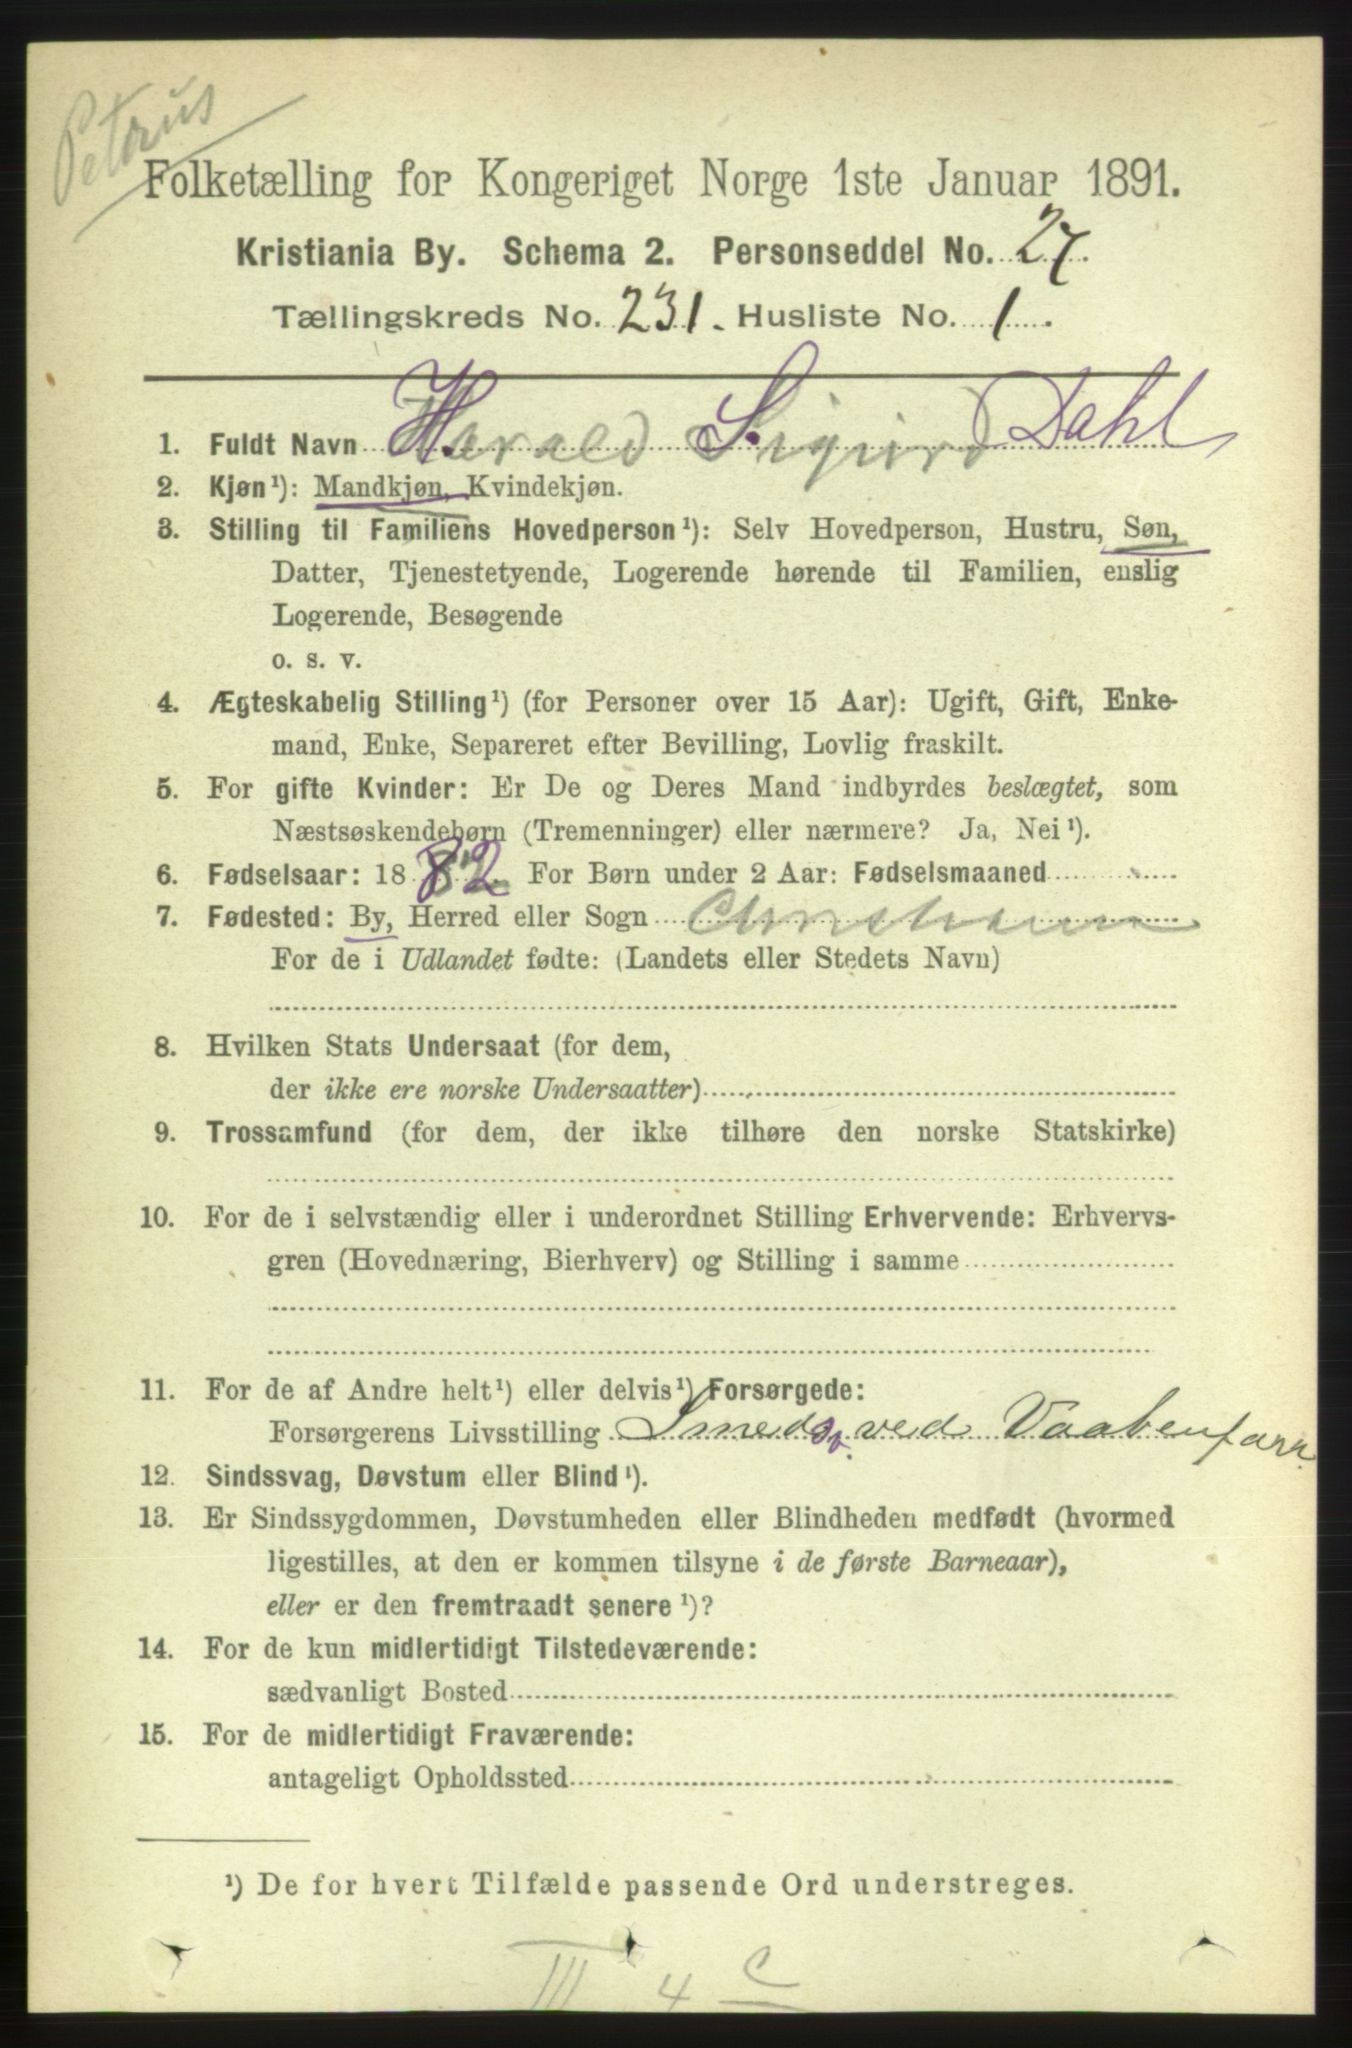 Petrus
Folketælling for Kongeriget Norge 1ste Januar 1891.
Kristiania By. Schema 2. Personseddel No. 27.
Tællingskreds No. 231. Husliste No. 1.
1. Fuldt Navn Harald Sigurd Dahl
2. Kjøn¹): Mandkjøn, Kvindekjøn.
3. Stilling til Familiens Hovedperson¹): Selv Hovedperson, Hustru, Søn,
Datter, Tjenestetyende, Logerende hørende til Familien, enslig
Logerende, Besøgende
o. s. v.
4. Ægteskabelig Stilling¹) (for Personer over 15 Aar): Ugift, Gift, Enke-
mand, Enke, Separeret efter Bevilling, Lovlig fraskilt.
5. For gifte Kvinder: Er De og Deres Mand indbyrdes beslægtet, som
Næstsøskendebørn (Tremenninger) eller nærmere? Ja, Nei¹).
6. Fødselsaar: 1882 For Børn under 2 Aar: Fødselsmaaned
7. Fødested: By, Herred eller Sogn Christiania
For de i Udlandet fødte: (Landets eller Stedets Navn)
8. Hvilken Stats Undersaat (for dem,
der ikke ere norske Undersaatter)
9. Trossamfund (for dem, der ikke tilhøre den norske Statskirke)
10. For de i selvstændig eller i underordnet Stilling Erhvervende: Erhvervs-
gren (Hovednæring, Bierhverv) og Stilling i samme
11. For de af Andre helt¹) eller delvis¹) Forsørgede:
Forsørgerens Livsstilling Smedsv. ved Vaabenfarr.
12. Sindssvag, Døvstum eller Blind¹).
13. Er Sindssygdommen, Døvstumheden eller Blindheden medfødt (hvormed
ligestilles, at den er kommen tilsyne i de første Barneaar),
eller er den fremtraadt senere¹)?
14. For de kun midlertidigt Tilstedeværende:
sædvanligt Bosted
15. For de midlertidigt Fraværende:
antageligt Opholdssted
¹) De for hvert Tilfælde passende Ord understreges.
III 4 C